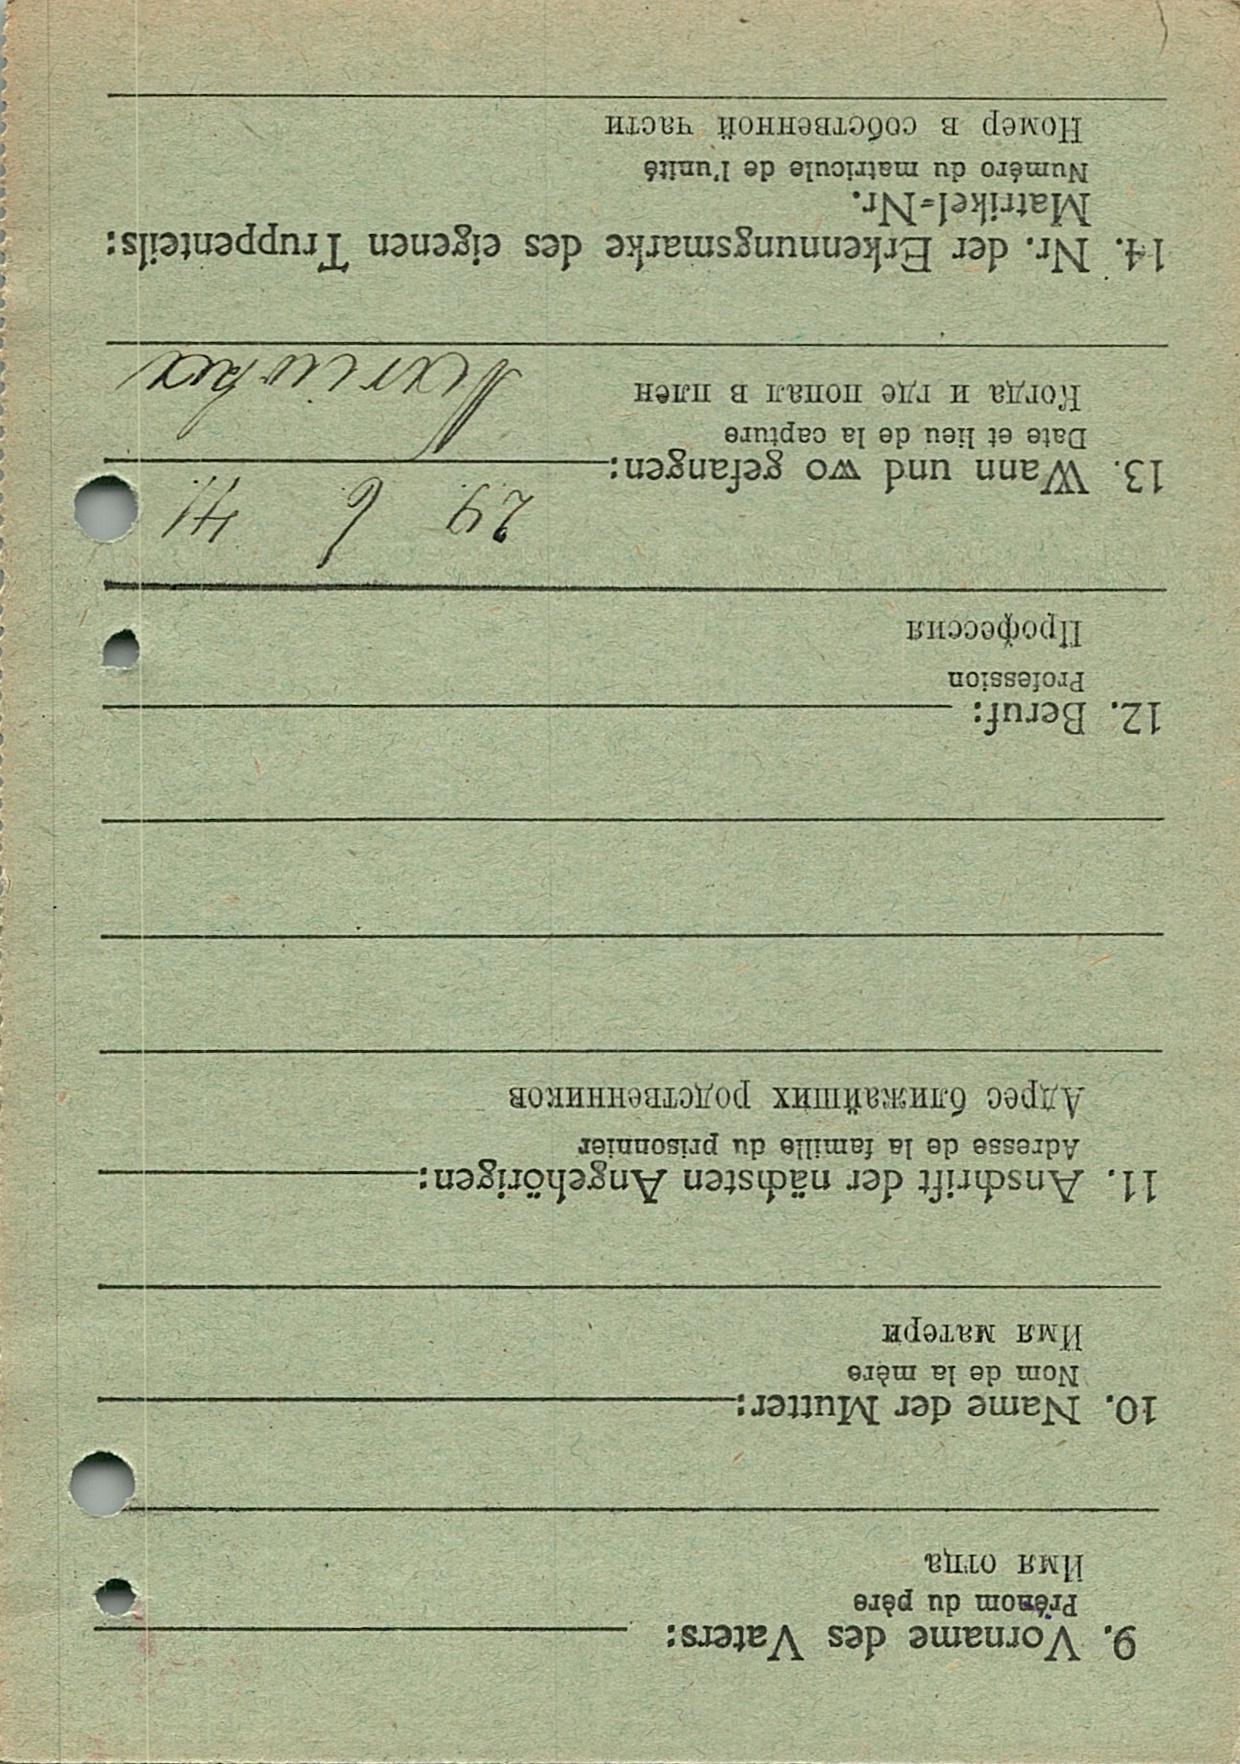 9. Vorname des Vaters:
Prénom du père
Имя отца
10. Name der Mutter:
Nom de la mère
Имя матери
11. Anschrift der nächsten Angehörigen:
Adresse de la famille du prisonnier
Адрес ближайших родственников
12. Beruf:
Profession
Профессия
29 6 41
13. Wann und wo gefangen:
Date et lieu de la capture
Когда и где попал в плен
14. Nr. der Erkennungsmarke des eigenen Truppenteils:
Matrikel=Nr.
Numéro du matricule de l'unité
Номер в собственной части